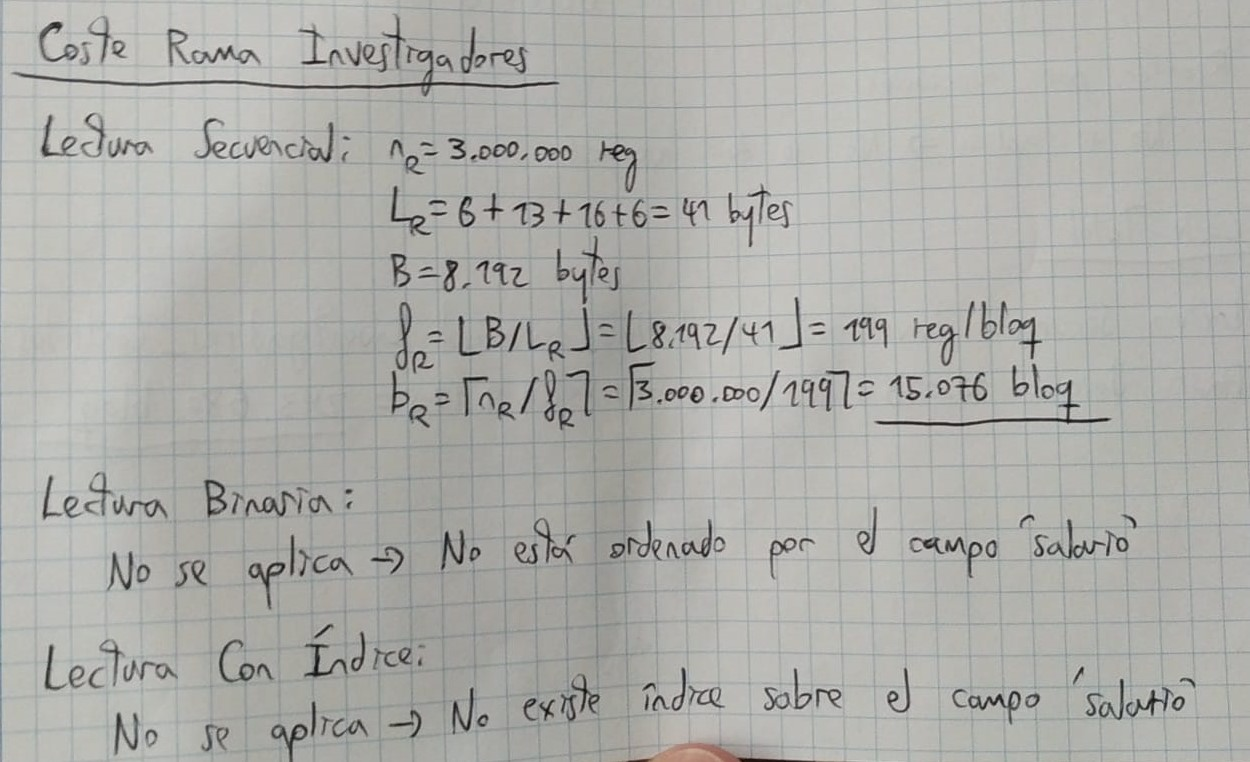 Coste Rama Investigadores
Lectura Secuencial: nR = 3.000.000 reg
LR = 6 + 13 + 16 + 6 = 41 bytes
B = 8.192 bytes
fR = ⌊B/LR⌋ = ⌊8.192/41⌋ = 199 reg/bloq
bR = ⌈nR/fR⌉ = ⌈3.000.000/199⌉ = 15.076 bloq
Lectura Binaria:
No se aplica → No está ordenado por el campo "salario"
Lectura Con Índice:
No se aplica → No existe índice sobre el campo "salario"